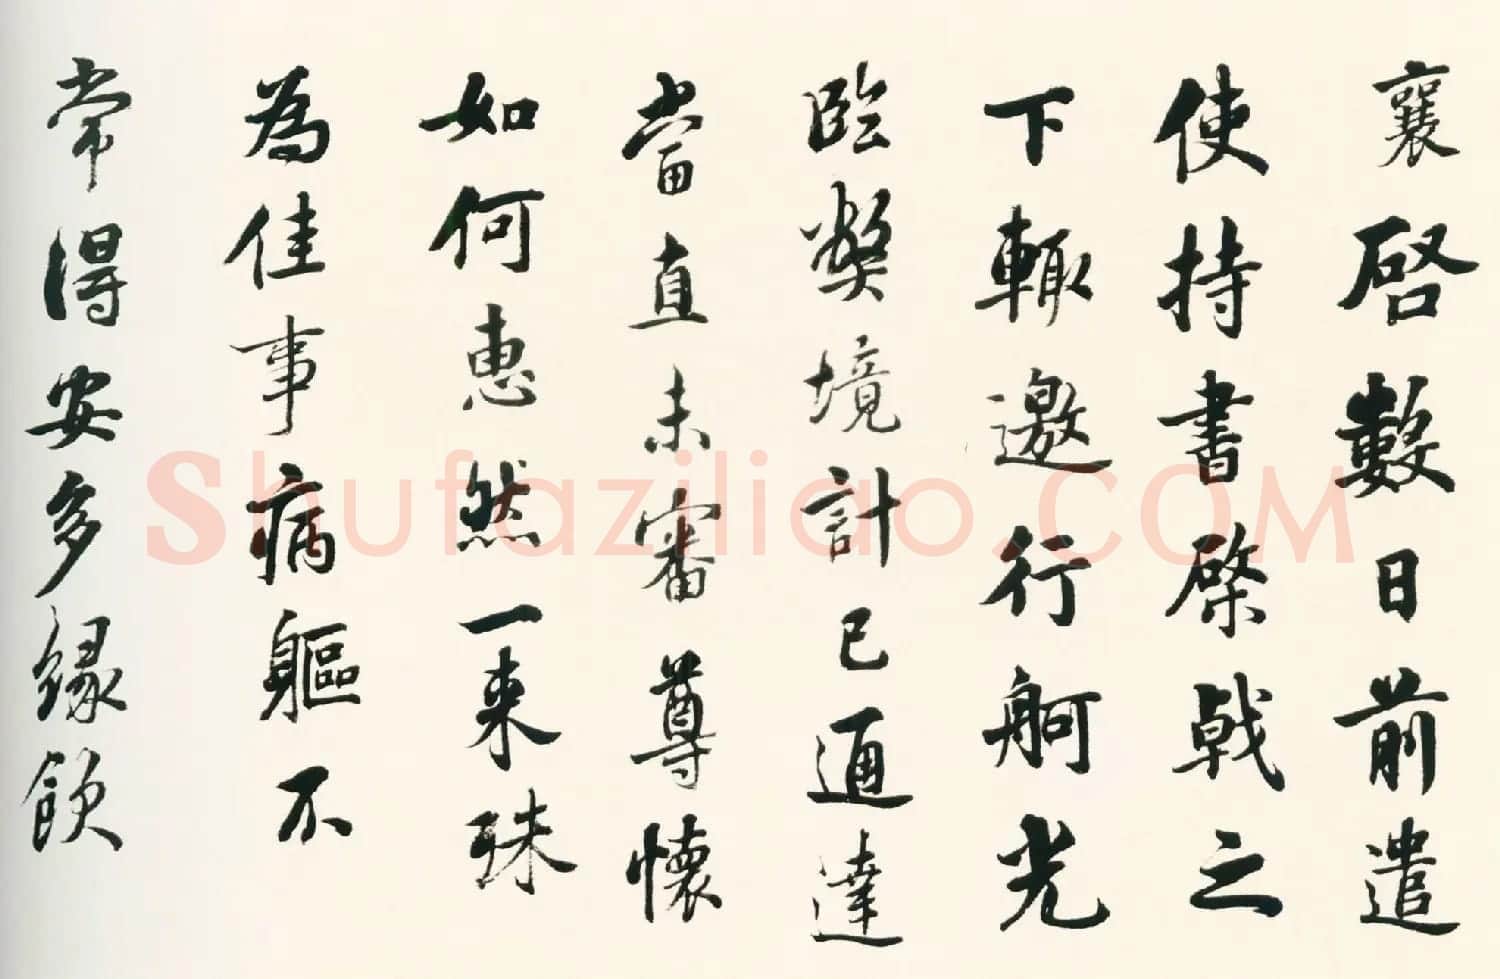 襄啓數日前遣
使持書啓戟之
下輙邀行舸光
臨獘境計已通達
當直未審尊懷
如何惠然一来殊
為佳事病軀不
常得安多緣飲
Shufaziliao.COM